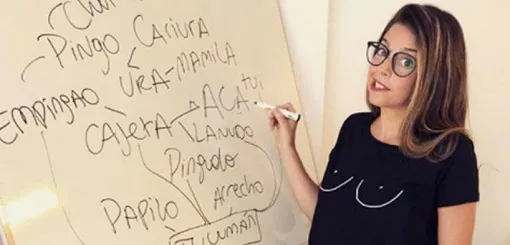 PINGO CARIURA
URA-MAMILA
EMPINGAO
CAJETA ACA tui
LANUDO
Pingudo
Arrecho
PAPILO